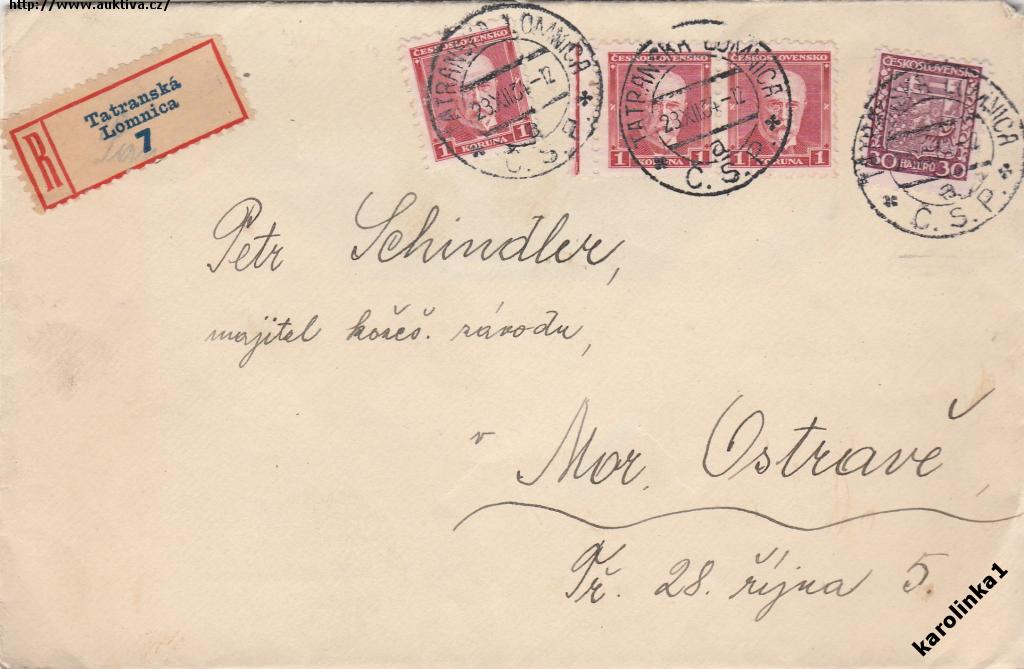 http://www.auktiva.cz/
R
Tatranská
Lomnica
7
ČESKOSLOVENSKO
1 KORUNA 1
TATRANSKÁ LOMNICA
28.XII.34-12
Č.S.P.
ČESKOSLOVENSKO
1 KORUNA 1
ČESKOSLOVENSKO
1 KORUNA 1
TATRANSKÁ LOMNICA
28.XII.34-12
Č.S.P.
ČESKOSLOVENSKO
30 HALÉŘŮ 30
Č.S.P.
Petr Schindler,
majitel kožeš. závodu,
v Mor. Ostravě,
Tř. 28. října 5.
karolinka1